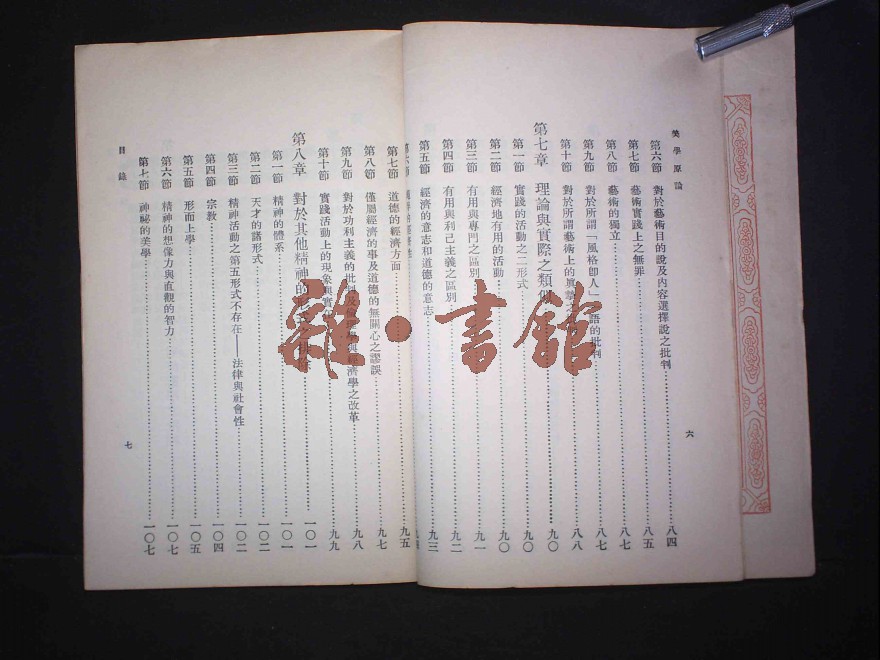 美學原論
第六節 對於藝術目的說及內容選擇說之批判 八四
第七節 藝術實踐上之無罪 八五
第八節 藝術的獨立 八七
第九節 對於所謂「風格卽人」 語的批判 八七
第十節 對於所謂藝術上的眞摯之 八八
第七章 理論與實際之類似 九〇
第一節 實踐的活動之二形式 九〇
第二節 經濟地有用的活動 九〇
第三節 有用與專門之區別 九一
第四節 有用與利己主義之區別 九二
第五節 經濟的意志和道德的意志 九三
六
第六節
第七節 道德的經濟方面 九五
第八節 僅屬經濟的事及道德的無關心之謬誤 九七
第九節 對於功利主義的批判及 學與經濟學之改革 九八
第十節 實踐活動上的現象與實 九九
第八章 對於其他精神的形式之 一〇一
第一節 精神的體系 一〇一
第二節 天才的諸形式 一〇二
第三節 精神活動之第五形式不存在——法律與社會性 一〇二
第四節 宗教 一〇四
第五節 形而上學 一〇五
第六節 精神的想像力與直觀的智力 一〇七
第七節 神祕的美學 一〇七
目錄
七
雜·書館